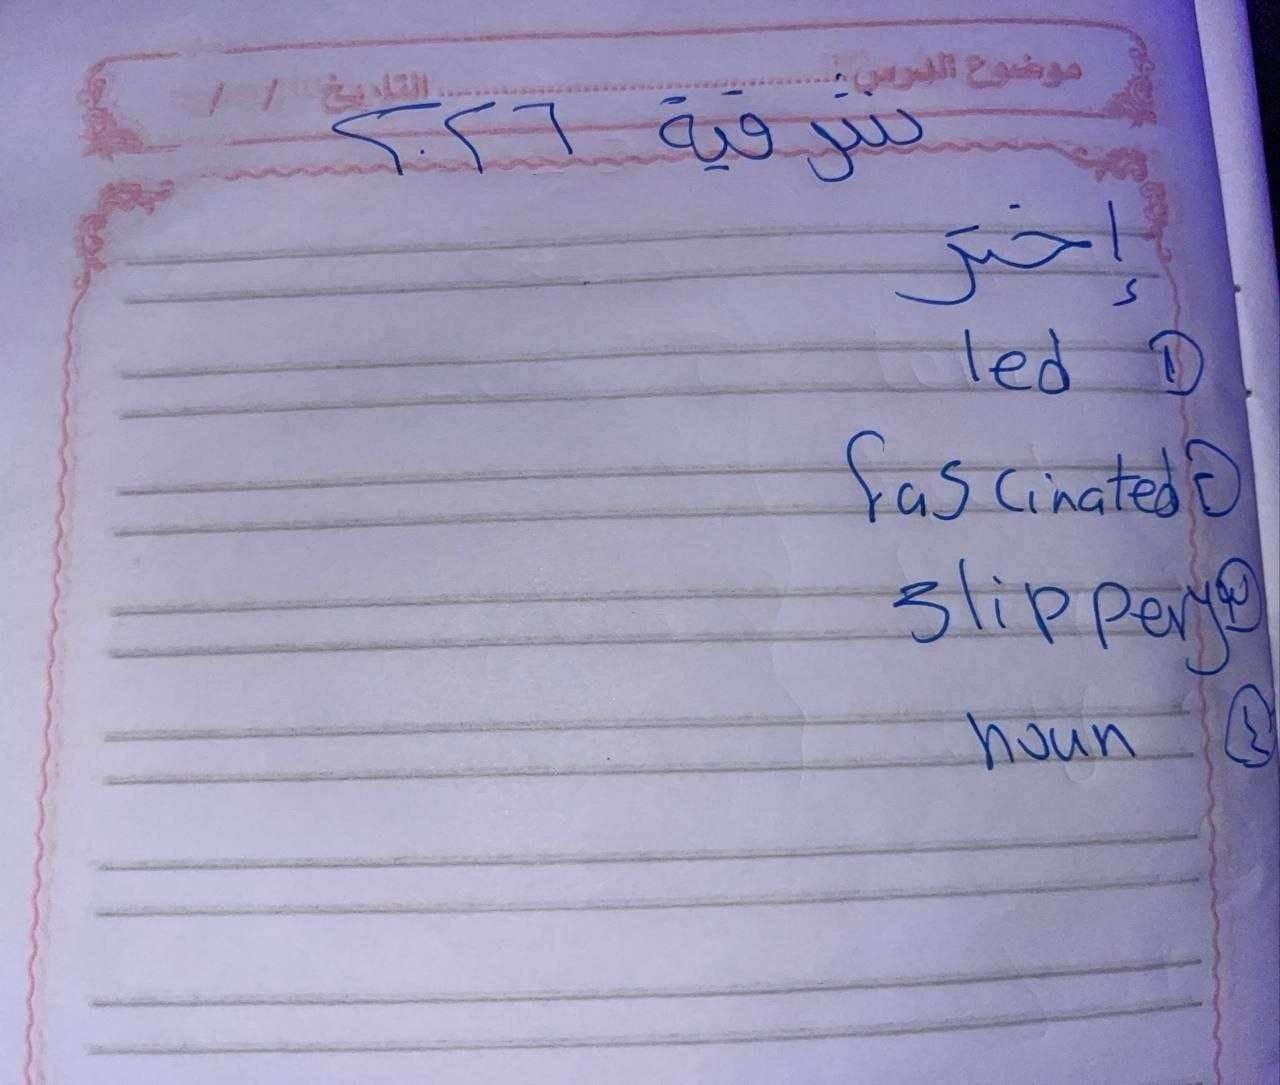 موضوع الدرس: .................... التاريخ / /
شرقية ٢٠٢٦
إختر
① led
② fascinated
③ slippery
④ noun